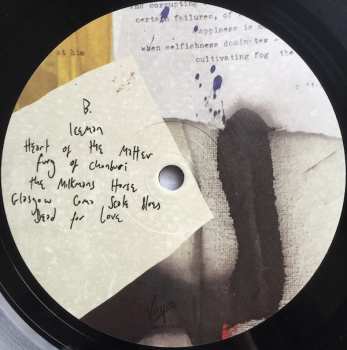 The corrupting
certain failures, of
happiness is
when selfishness dominates
cultivating fog the
at him
B.
Iceman
Heart of the Matter
Fury of Chonburi
the Milkmans Horse
Glasgow Coma Scale Blues
Dead for Love
Virgin